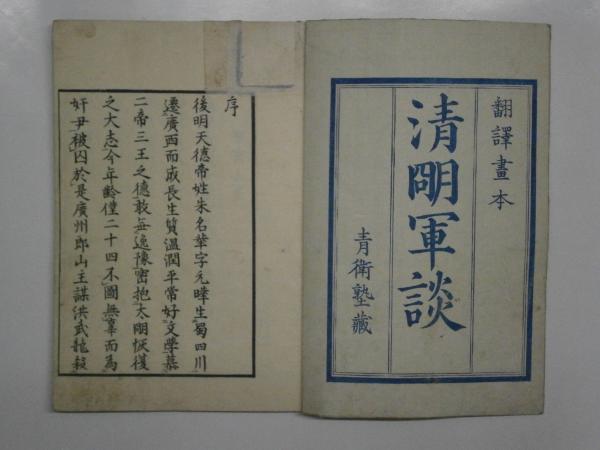 翻譯畫本
清明軍談
青衛塾藏
序
後明天德帝姓朱名華字元曄生蜀四川
遷廣西而成長生質溫潤平常好文學慕
二帝三王之德敢無逸豫密抱太明恢復
之大志今年齡僅二十四不圖無辜而為
奸尹被囚於是廣州郎山主謀洪武龍殺